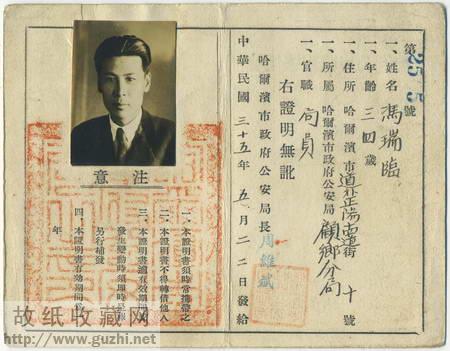 第255號
一、姓名 馮瑞臨
一、年齡 三四歲
一、住所 哈爾濱市道外正陽南道街十號
一、所屬 哈爾濱市政府公安局 顧鄉分局
一、官職 局員
右證明無訛
哈爾濱市政府公安局長 周維斌
中華民國三十五年五月二二日發給
注意
一、本證明書須時常攜帶之
二、本證明書不得轉借他人
三、本證明書過有效期間或
發生變動時須即時呈報
另行補發
四、本證明書有効期間為
年
故纸收藏网
http://www.guzhi.net